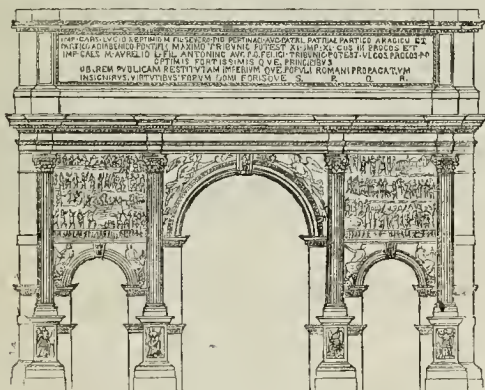 IMP·CAES·LVCIO·SEPTIMIO M·FIL·SEVERO·PIO PERTINACI·AVG·PATRI PATRIAE PARTICO ARABICO ET
PARTICO ADIABENICO PONTIFIC MAXIMO TRIBVNIC POTEST XI·IMP·XI·COS III PROCOS ET
IMP·CAES M·AVRELIO L·FIL ANTONINO AVG·P·O·FELICI·TRIBVNIC·POTEST·VI·COS PROCOS·P·P
OPTIMIS FORTISSIMIS QVE, PRINCIBVS
OB·REM PVBLICAM RESTITVTAM IMPERIVM QVE POPVLI ROMANI PROPAGATVM
INSIGNIBVS·VIRTVTIBVS FORVM DOMI FORISQVE S. P. Q. R.